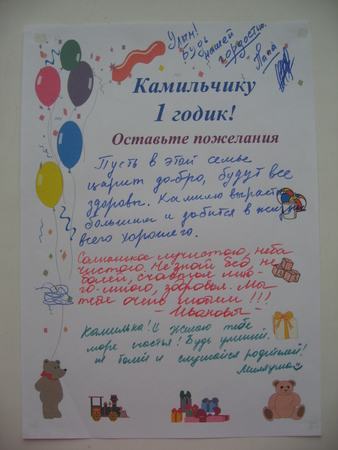 Улан!
Будь
нашей
гордостью.
Папа
Камильчику
1 годик!
Оставьте пожелания
Пусть в этой семье
царит добро, будут все
здоровы. Камилю вырасти
большим и добится в жизни
всего хорошего.
Солнышка лучистого, неба
чистого. Не знай бед, не
болей, счастья мно-
го-много, здоровья. Мы
тебя очень любим!!!
- Ивановы -
Камилька! Я желаю тебе
море счастья! Будь умницей.
не болей и слушайся родителей!